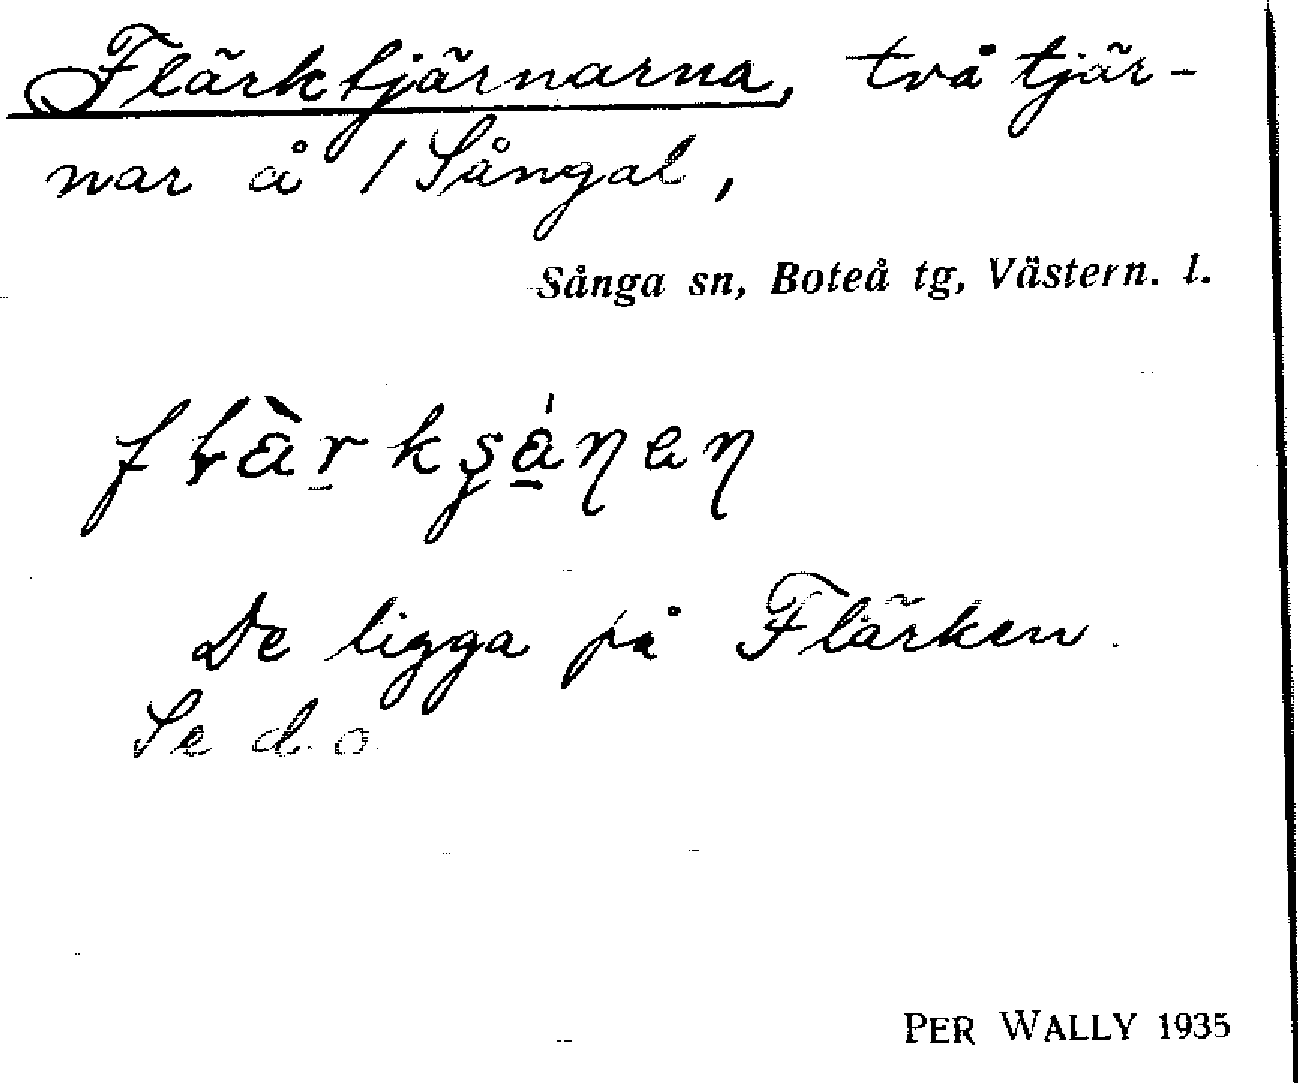 Flärktjärnarna, två tjär-
nar å 1 Sångal,
Sånga sn, Boteå tg, Västern. l.
De ligga på Flärken.
Se d. o.
PER WALLY 1935